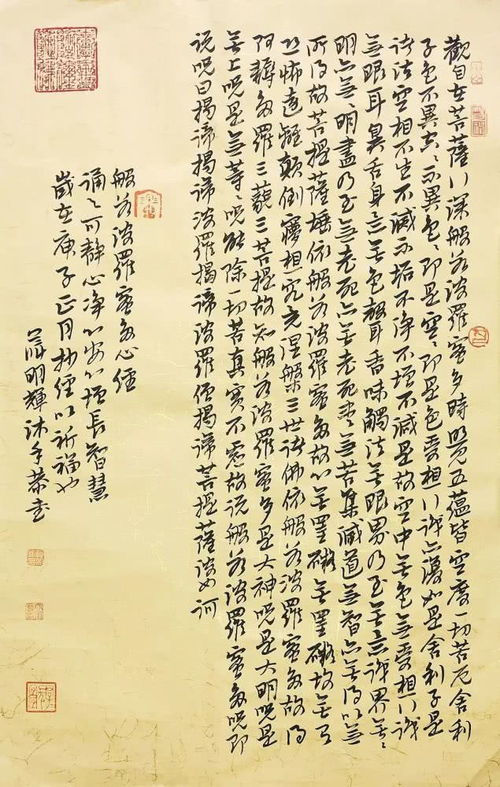 觀自在菩薩行深般若波羅蜜多時照見五蘊皆空度一切苦厄舍利
子色不異空々不異色々即是空々即是色受想行識亦復如是舍利子是
諸法空相不生不滅不垢不净不增不減是故空中無色無受想行識
無眼耳鼻舌身意無色聲香味觸法無眼界乃至無意識界無々
明亦無々明盡乃至無老死亦無老死盡無苦集滅道無智亦無得以無
所得故菩提薩埵依般若波羅蜜多故心無罣礙無罣礙故無有
恐怖遠離顛倒夢想究竟涅槃三世諸佛依般若波羅蜜多故得
阿耨多羅三藐三菩提故知般若波羅蜜多是大神咒是大明咒是
無上咒是無等々咒能除一切苦真實不虛故說般若波羅蜜多咒即
說咒曰揭諦揭諦波羅揭諦波羅僧揭諦菩提薩婆訶
般若波羅蜜多心經
誦之可静心净心安心增長智慧
歲在庚子正月抄經以祈福也
明輝沐手恭書